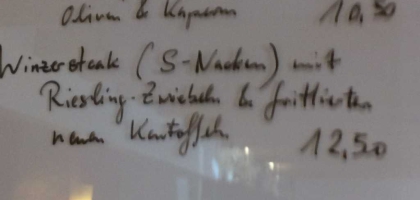 Oliven & Kapern 10,50
Winzersteak (S-Nacken) mit
Riesling-Zwiebeln & frittierten
neuen Kartoffeln 12,50